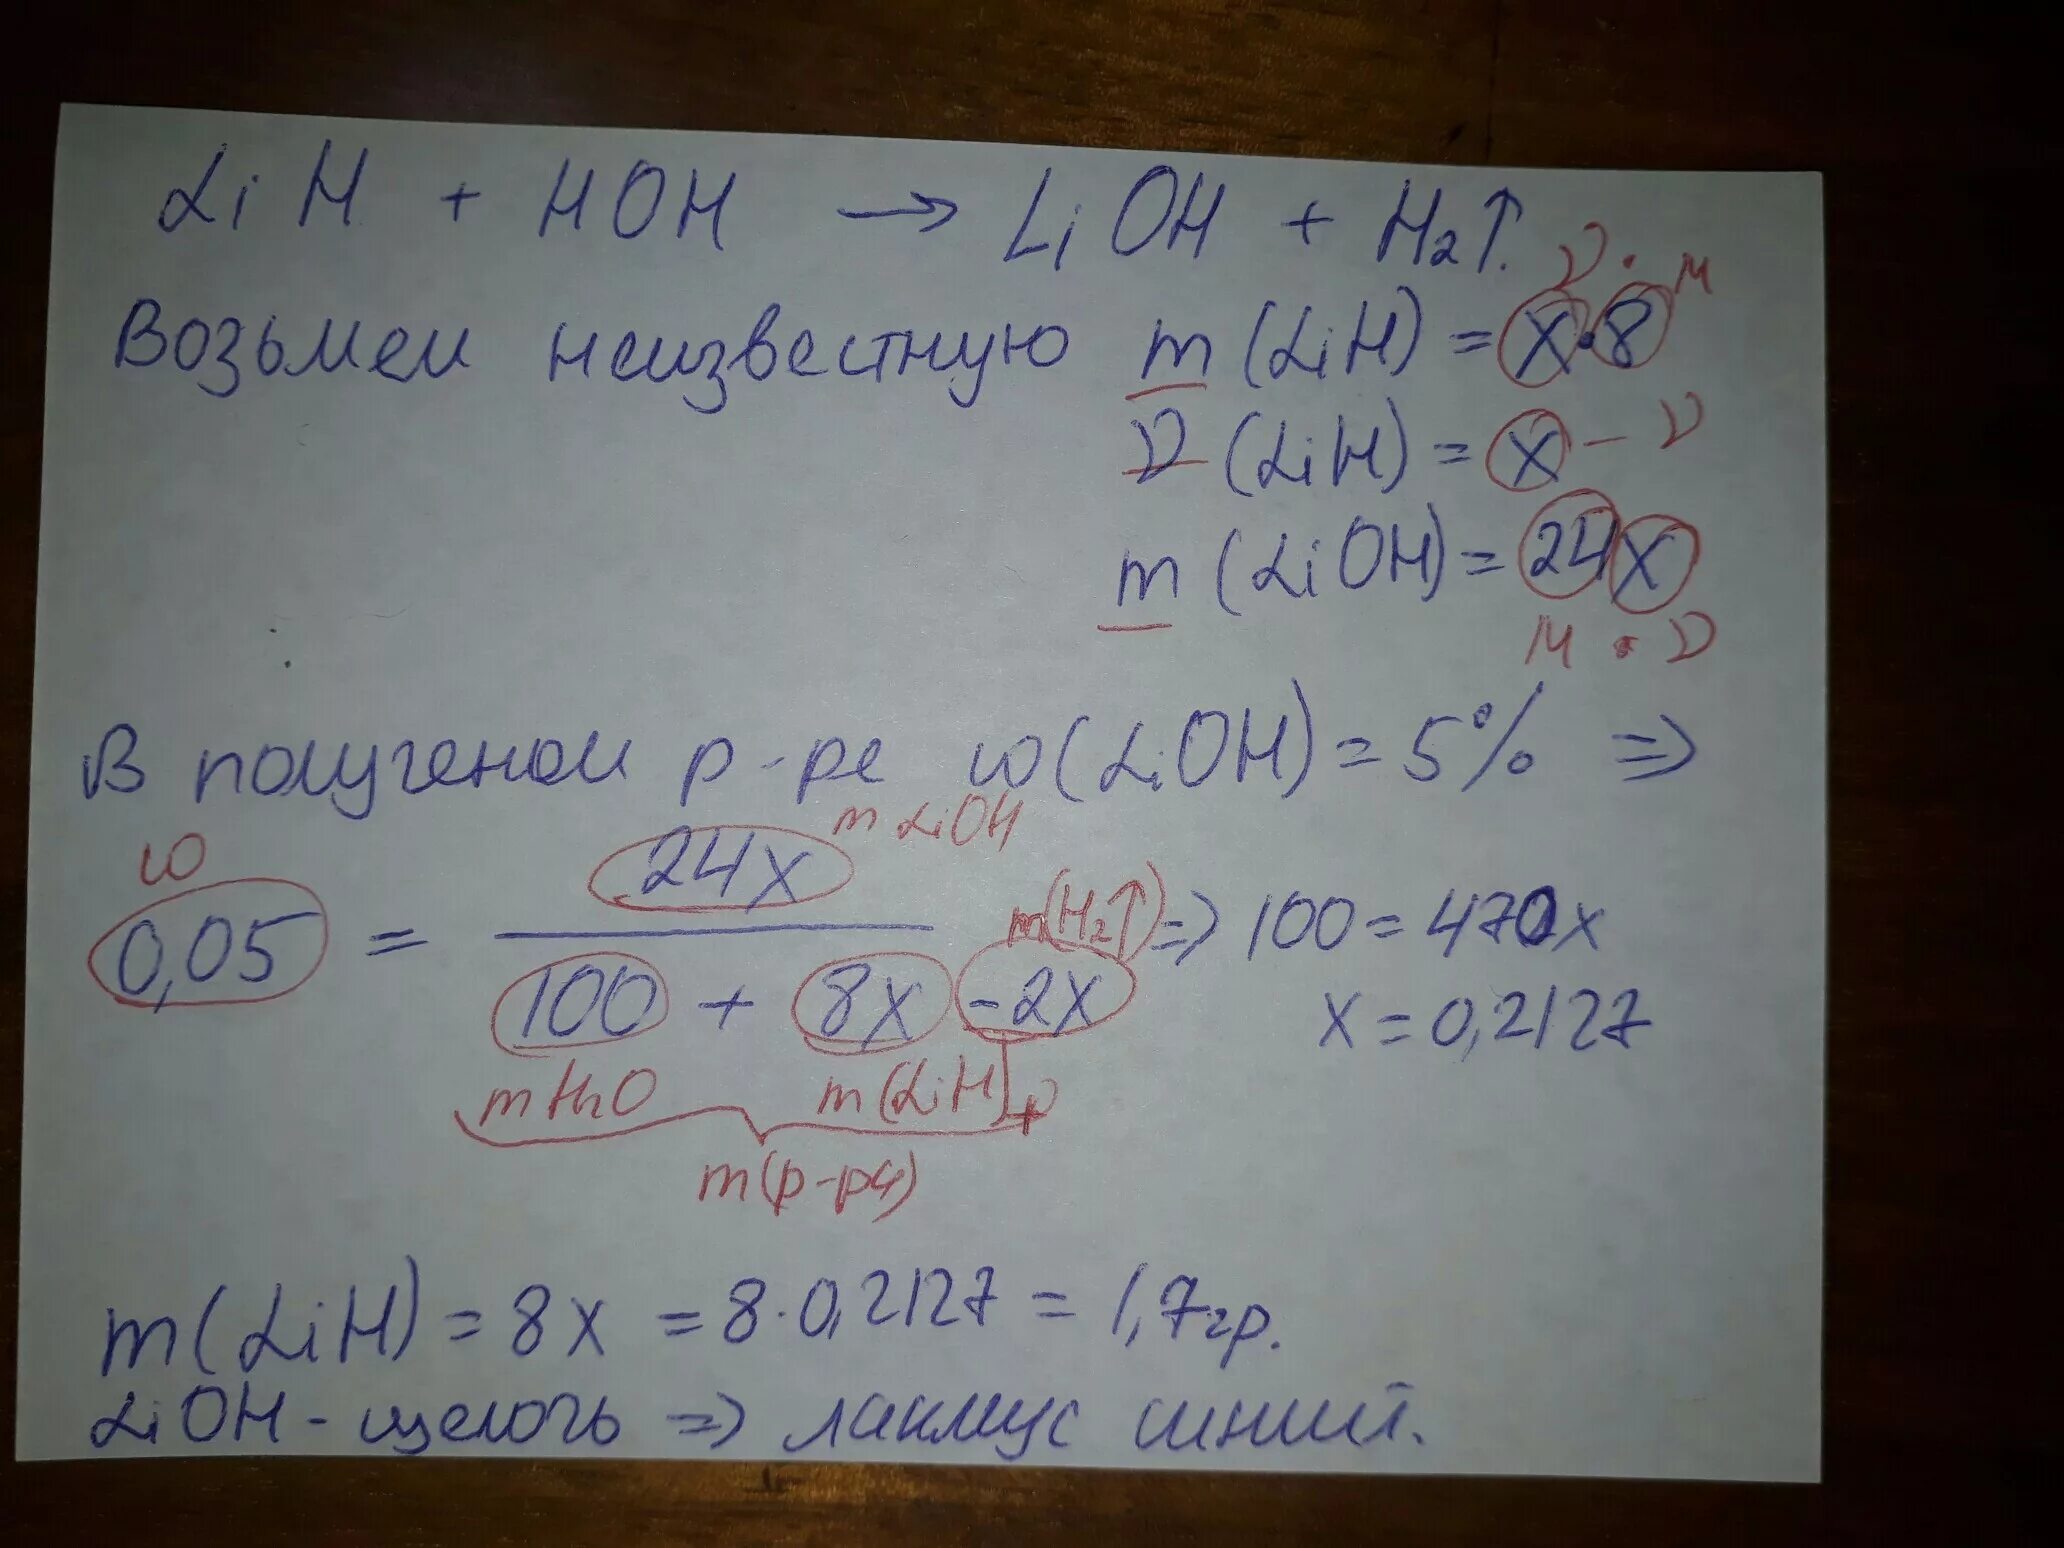 LiH + HOH → LiOH + H₂↑
ν · M
Возьмем неизвестную m (LiH) = x·8
ν (LiH) = x – ν
m (LiOH) = 24x
M · ν
В полученом р-ре ω(LiOH) = 5% ⇒
ω
24x m LiOH
0,05 = ⇒ 100 = 470x
m(H₂↑)
100 + 8x - 2x x = 0,2127
mH₂O m(LiH)
m(р-ра)
m(LiH) = 8x = 8·0,2127 = 1,7гр.
LiOH - щелочь ⇒ лакмус синий.